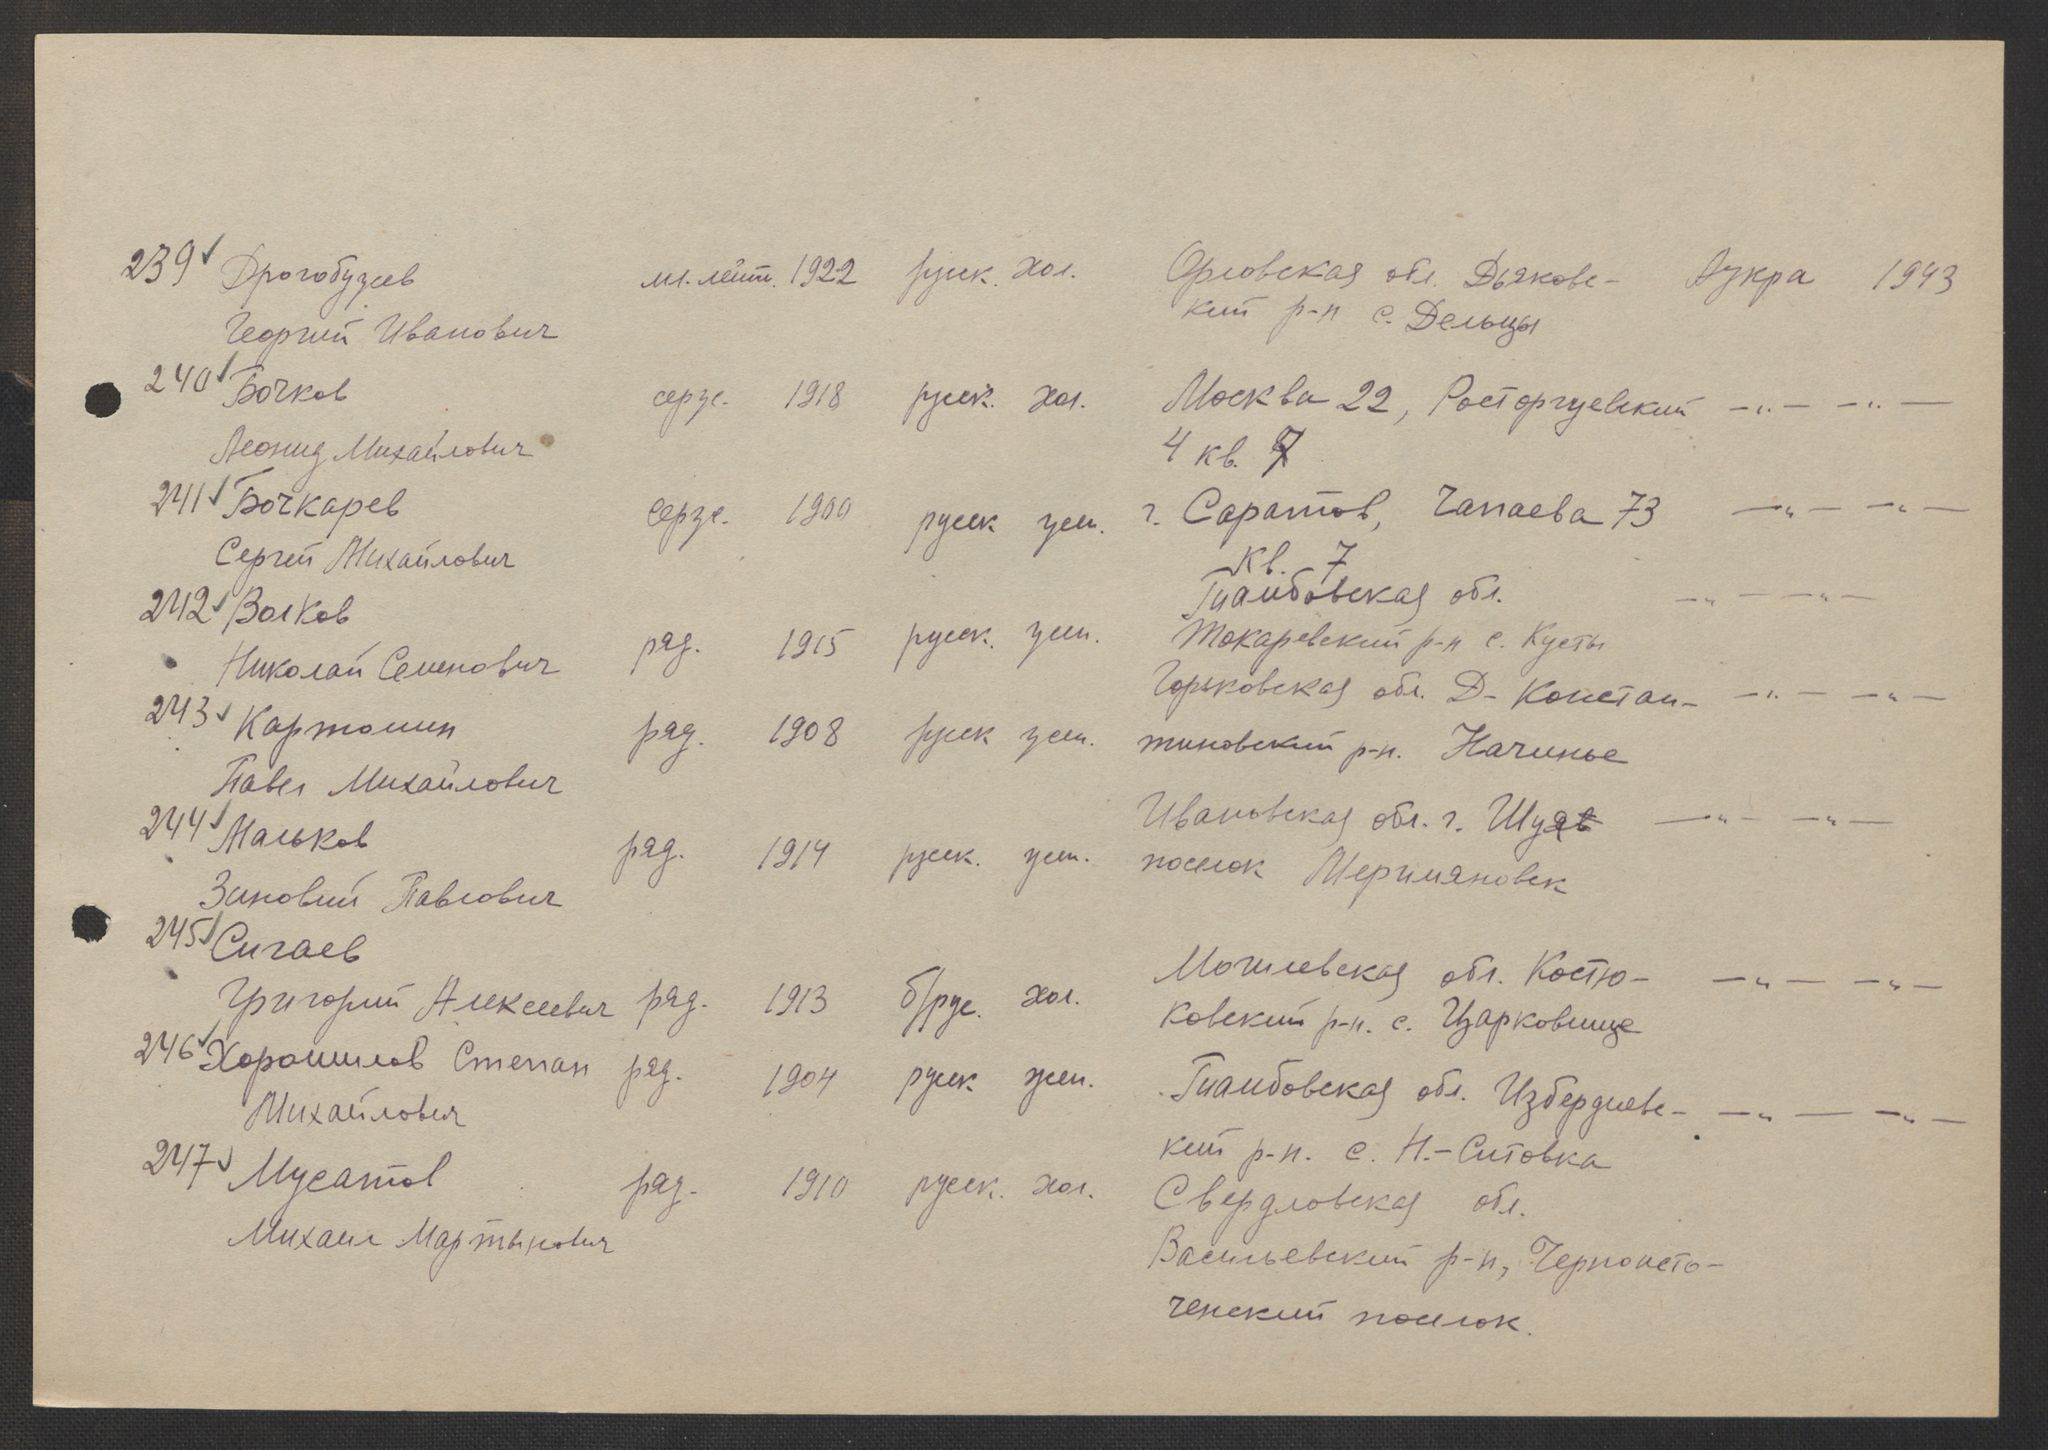 239 Дрогобужев мл. лейт. 1922 русск. хол. Орловская обл. Дьяковс- Аукра 1943
Георгий Иванович кий р-н с. Дельцы
240 Бочков серж. 1918 русск. хол. Москва 22, Расторгуевский —"— —"—
Леонид Михайлович 4 кв. 7
241 Бочкарев серж. 1900 русск жен. г. Саратов, Чапаева 73 —"— —"—
Сергей Михайлович кв. 7
242 Волков Тамбовская обл. —"— —"—
Николай Семенович ряд. 1915 русск. жен. Токаревский р-н с. Кусты
243 Картошин ряд. 1908 русск жен. Горьковская обл. Д-Констан- —"— —"—
Павел Михайлович тиновский р-н. Начинье
244 Мальков ряд. 1914 русск. жен. Ивановская обл. г. Шуя —"— —"—
Зиновий Павлович поселок
245 Сигаев Могилевская обл. Костю- —"— —"—
Григорий Алексеевич ряд. 1913 б/рус. хол. ковский р-н. с. Царковище
246 Хорошилов Степан ряд. 1904 русск жен. Тамбовская обл. Избердиевс- —"— —"—
Михайлович кий р-н. с. Н.-Ситовка
247 Мусатов ряд. 1910 русск. хол. Свердловская обл.
Михаил Мартынович Васильевский р-н, Черноисто-
ченский поселок.